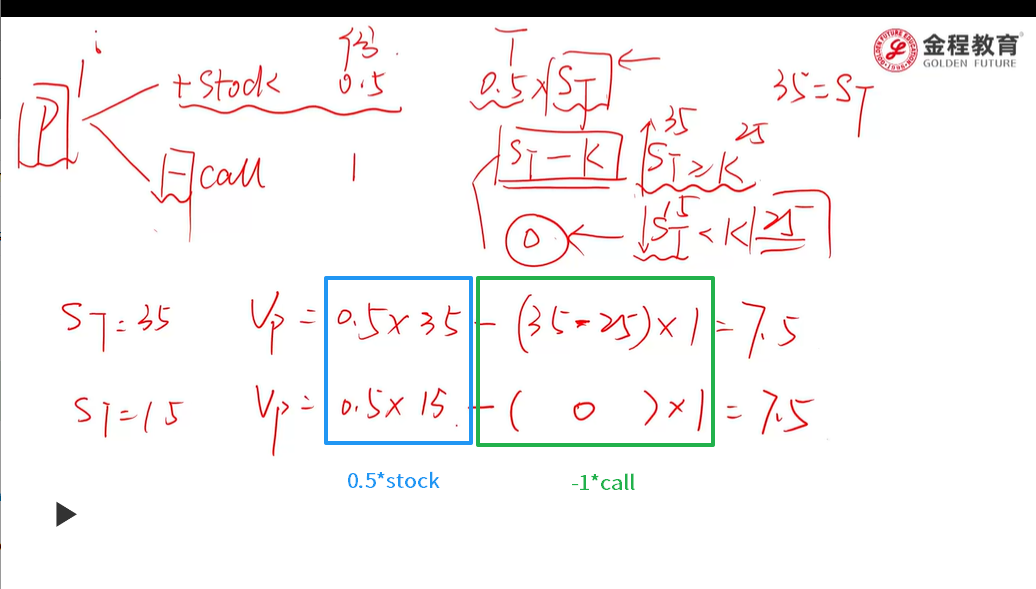 金程教育
GOLDEN FUTURE
i 份. T
P + Stock 0.5 0.5 × S_T ← 35 = S_T
- call 1 S_T - K S_T ≥ K 35 25
0 ← S_T < K 15 25
S_T = 35 V_P = 0.5 × 35 - (35 - 25) × 1 = 7.5
S_T = 15 V_P = 0.5 × 15 - ( 0 ) × 1 = 7.5
0.5*stock -1*call